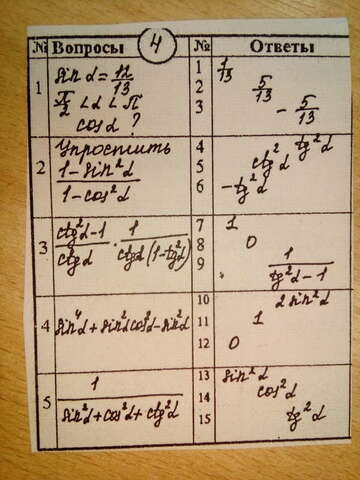 № Вопросы 4 № Ответы
1 sin α = 12/13
π/2 < α < π
cos α ?
1 1/13
2 5/13
3 - 5/13
2 Упростить
1-sin²α / 1-cos²α
4 tg²α
5 ctg²α
6 -tg²α
3 ctg²α-1 / ctgα · 1 / ctgα(1-tg²α)
7 1
8 0
9 1 / tg²α-1
4 sin⁴α + sin²α cos²α - sin²α
10 2 sin²α
11 1
12 0
5 1 / sin²α + cos²α + ctg²α
13 sin²α
14 cos²α
15 tg²α